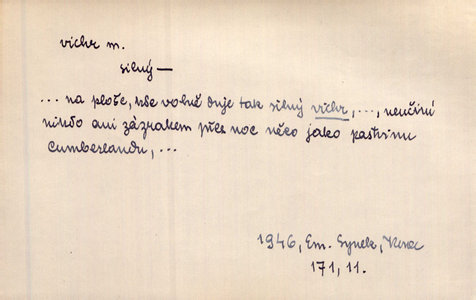 vichr m.
silný —
... na ploše, kde volně duje tak silný vichr, ..., neučiní
nikdo ani zázrakem přes noc něco jako pastvinu
Cumberlandu, ...
1946, Em. Synek,
171, 11.